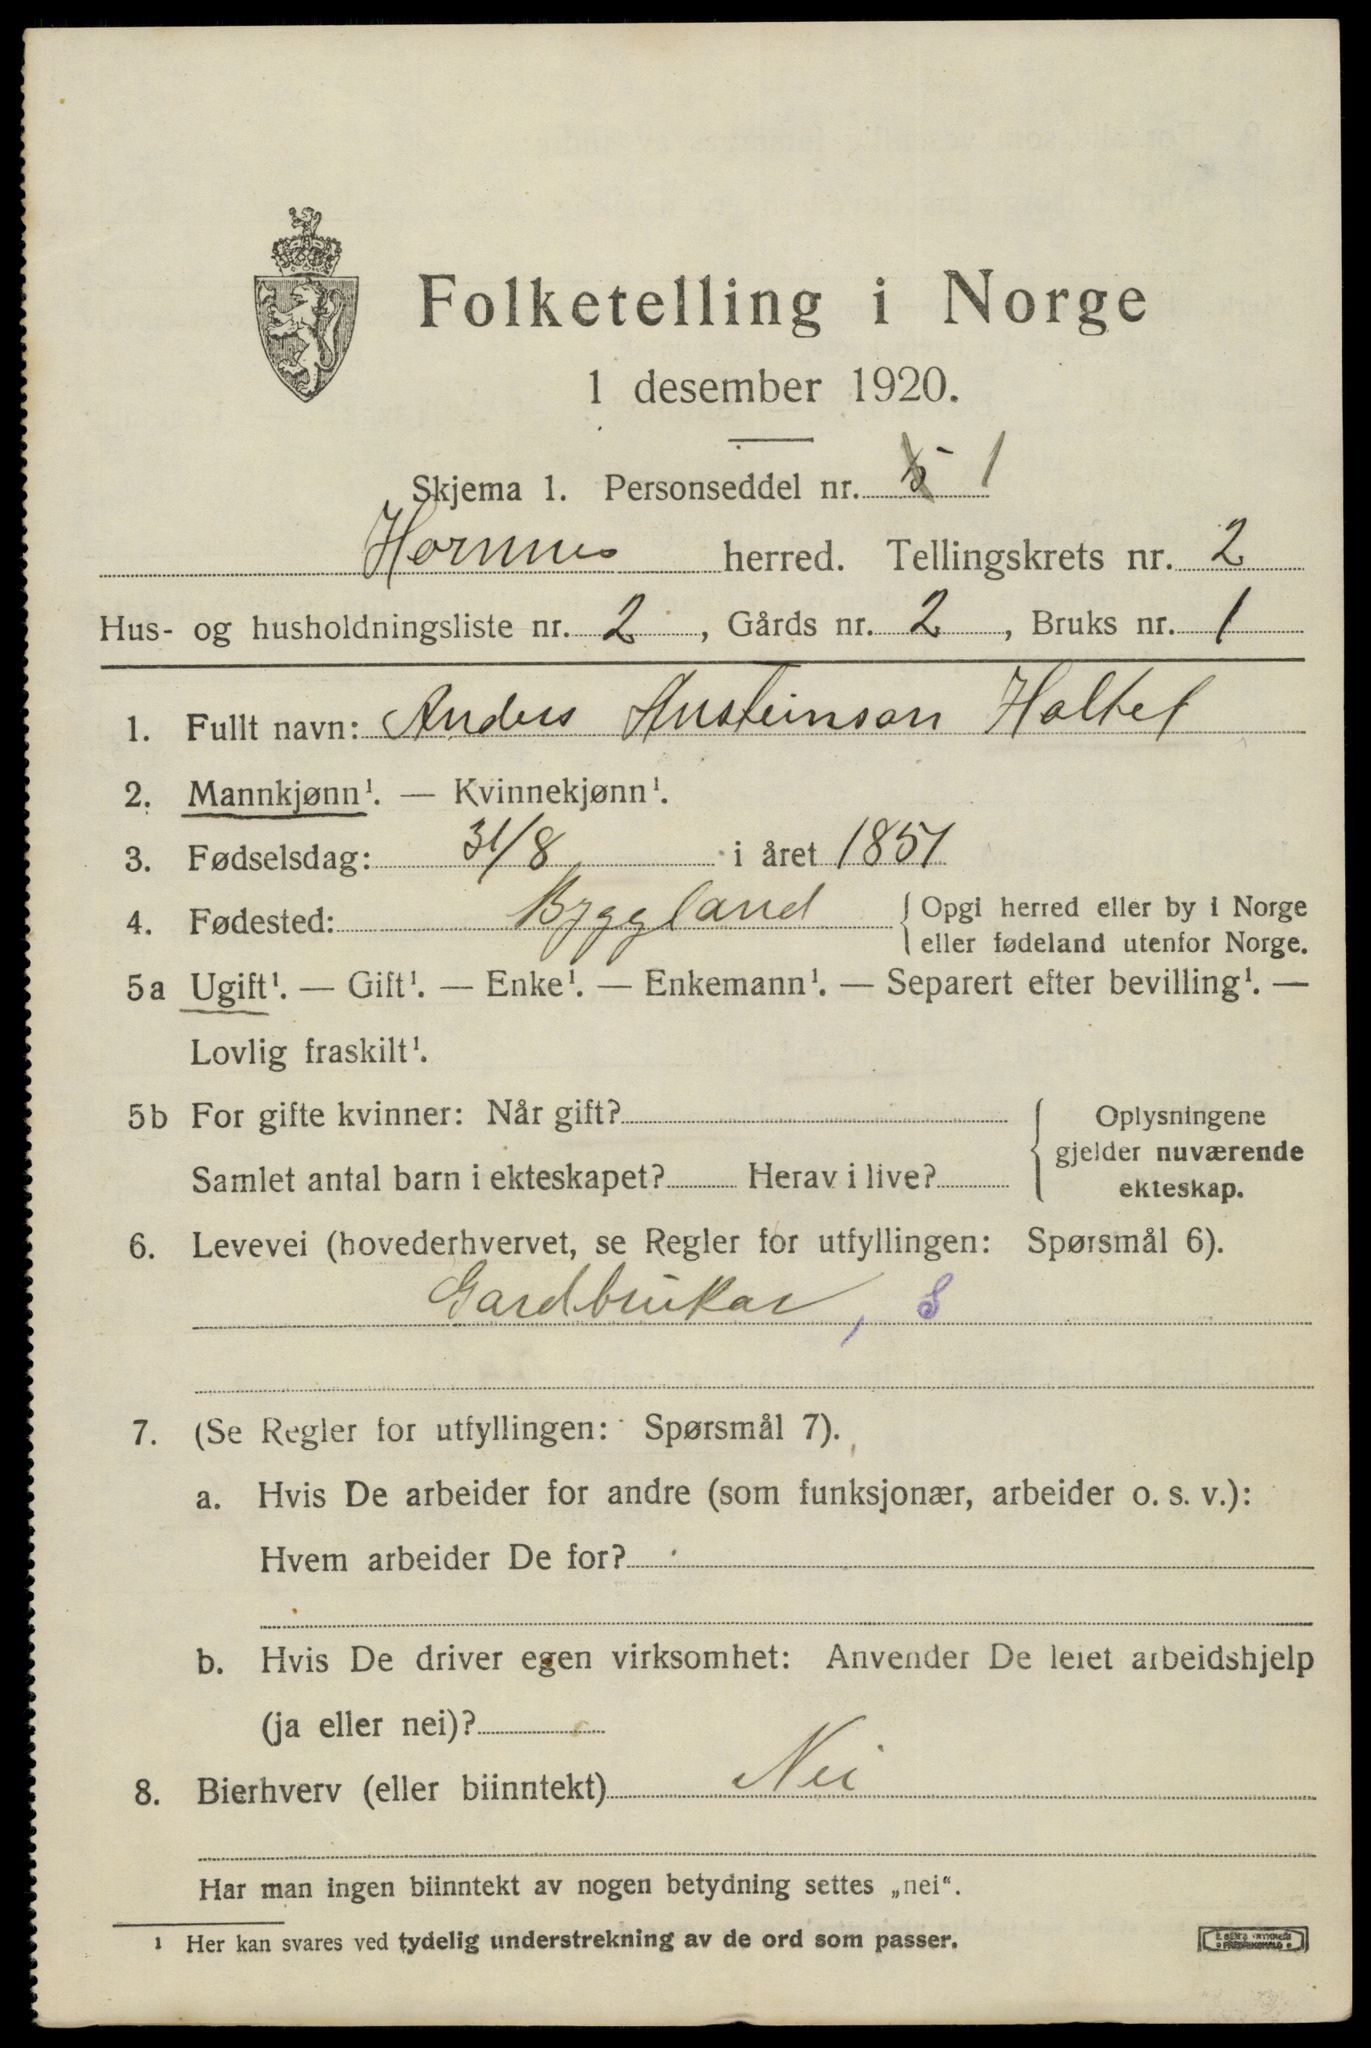 Folketelling i Norge
1 desember 1920.
Skjema 1. Personseddel nr. 5 1
Hornnes herred. Tellingskrets nr. 2
Hus- og husholdningsliste nr. 2, Gårds nr. 2, Bruks nr. 1
1. Fullt navn: Anders Austeinson Haltet
2. Mannkjønn¹. — Kvinnekjønn¹.
3. Fødselsdag: 31/8 i året 1851
4. Fødested: Byggland { Opgi herred eller by i Norge
eller fødeland utenfor Norge.
5a Ugift¹. — Gift¹. — Enke¹. — Enkemann¹. — Separert efter bevilling¹. —
Lovlig fraskilt¹.
5b For gifte kvinner: Når gift? { Oplysningene
gjelder nuværende
Samlet antal barn i ekteskapet? Herav i live? ekteskap.
6. Levevei (hovederhvervet, se Regler for utfyllingen: Spørsmål 6).
Gardbrukar, S
7. (Se Regler for utfyllingen: Spørsmål 7).
a. Hvis De arbeider for andre (som funksjonær, arbeider o. s. v.):
Hvem arbeider De for?
b. Hvis De driver egen virksomhet: Anvender De leiet arbeidshjelp
(ja eller nei)?
8. Bierhverv (eller biinntekt) Nei
Har man ingen biinntekt av nogen betydning settes „nei“.
¹ Her kan svares ved tydelig understrekning av de ord som passer.